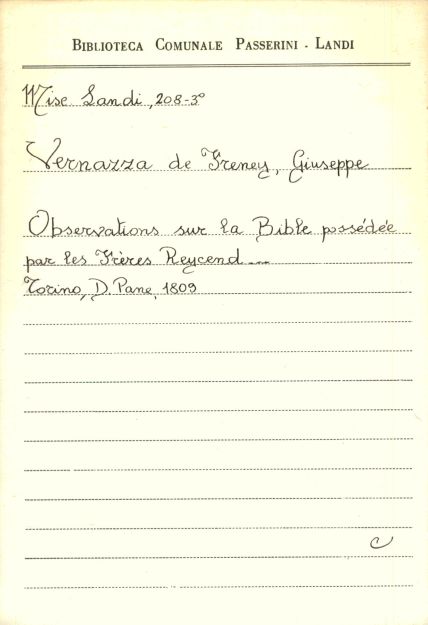 BIBLIOTECA COMUNALE PASSERINI - LANDI
Misc Landi, 208-3°
Vernazza de Freney, Giuseppe
Observations sur la Bible possédée
par les Frères Reycend...
Torino, D. Pane, 1809
C